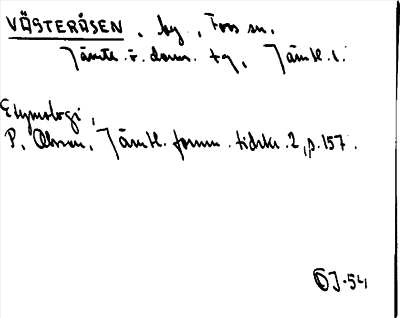 VÄSTERÅSEN, by, Fors sn.
Jämtl. ö. doms. tg, Jämtl. l.
Etymologi,
P. Olsson, Jämtl. fornm. tidskr. 2, p. 157.
ÖJ-54